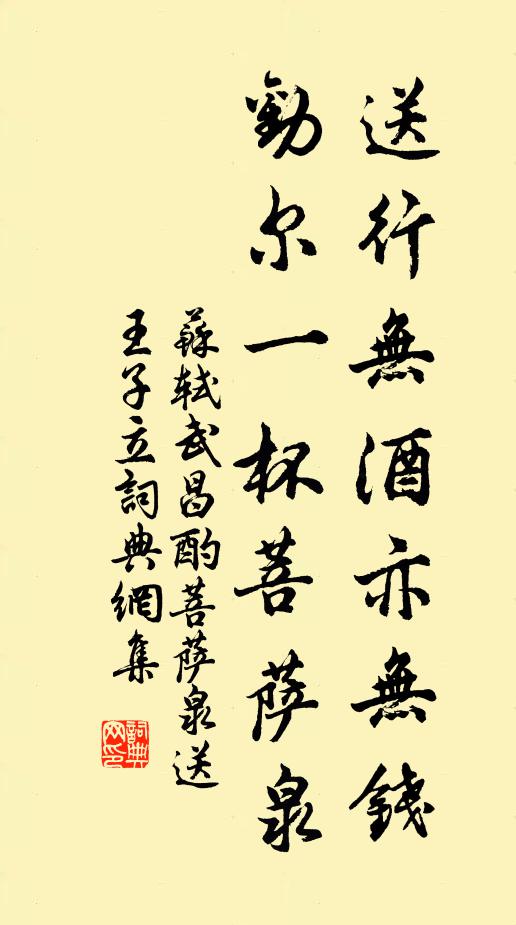 送行無酒亦無錢
勸尔一杯菩薩泉
蘇軾武昌酌菩薩泉送
王子立詞典網集
詞典
网印